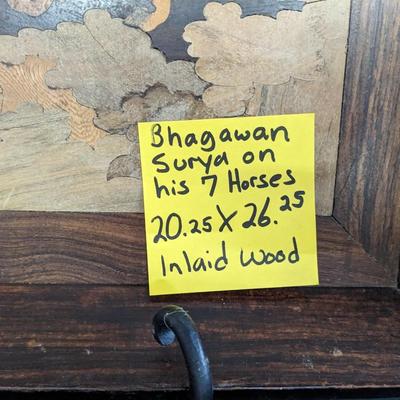 Bhagawan
Surya on
his 7 Horses
20.25 X 26.25
Inlaid Wood